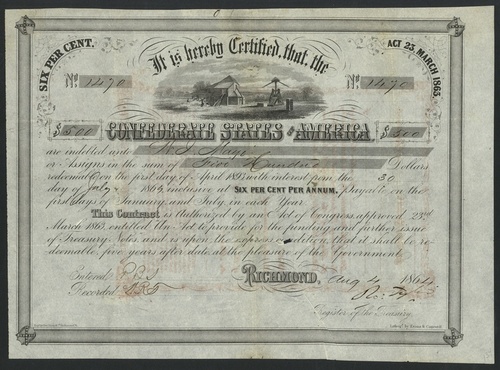 SIX PER CENT.
It is hereby Certified, that, the
ACT 23, MARCH 1863.
No. 1470
No. 1470
$500
CONFEDERATE STATES OF AMERICA
$500
are indebted unto
or Assigns in the sum of Five Hundred Dollars
redeemable on the first day of April 189 with interest from the 30
day of July 1864, inclusive at SIX PER CENT PER ANNUM, Payable on the
first days of January and July in each Year.
This Contract is Authorized by an Act of Congress approved 23rd
March 1863, entitled An Act to provide for the funding and further issue
of Treasury Notes, and is upon the express condition, that it shall be re-
deemable five years after date at the pleasure of the Government.
RICHMOND, Aug 4 1864
Entered
Recorded
Register of the Treasury